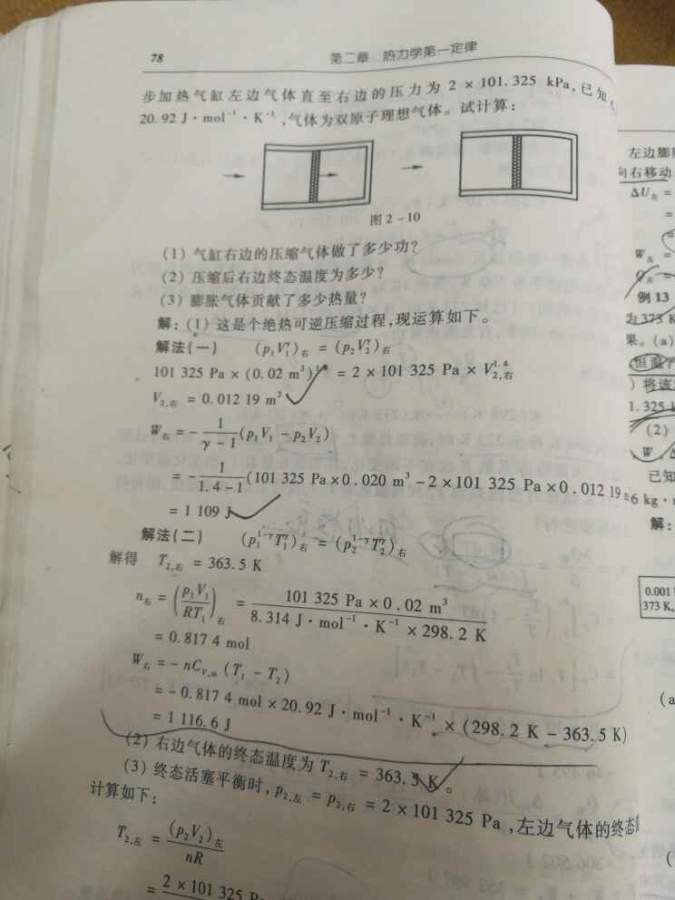 78 第二章 热力学第一定律
步加热气缸左边气体直至右边的压力为 2 × 101.325 kPa,已知
20.92 J·mol⁻¹·K⁻¹,气体为双原子理想气体。试计算:
图 2-10
(1) 气缸右边的压缩气体做了多少功?
(2) 压缩后右边终态温度为多少?
(3) 膨胀气体贡献了多少热量?
解:(1) 这是个绝热可逆压缩过程,现运算如下。
解法(一) (p₁V₁^γ)右 = (p₂V₂^γ)右
101 325 Pa × (0.02 m³)^1.4 = 2 × 101 325 Pa × V₂,右^1.4
V₂,右 = 0.012 19 m³
W右 = -1/(γ-1)(p₁V₁ - p₂V₂)
= -1/(1.4-1)(101 325 Pa×0.020 m³ - 2×101 325 Pa×0.012 19
= 1 109 J
解法(二) (p₁^(1-γ)T₁^γ)右 = (p₂^(1-γ)T₂^γ)右
解得 T₂,右 = 363.5 K
n右 = (p₁V₁/RT₁)右 = (101 325 Pa × 0.02 m³)/(8.314 J·mol⁻¹·K⁻¹ × 298.2 K)
= 0.817 4 mol
W右 = -nCV,m(T₁ - T₂)
= -0.817 4 mol × 20.92 J·mol⁻¹·K⁻¹ × (298.2 K - 363.5 K)
= 1 116.6 J
(2) 右边气体的终态温度为 T₂,右 = 363.5 K。
(3) 终态活塞平衡时,p₂,左 = p₂,右 = 2 × 101 325 Pa,左边气体的终态
计算如下:
T₂,左 = (p₂V₂)左/nR
= 2 × 101 325 P
左边膨
向右移动
ΔU左 =
=
=
W左 =
Q左 =
例 13
为 373 K
果。(a)
恒温
)将该
1.325 k
(2)
W
已知
6 kg·
解:
0.001
373 K,
(a